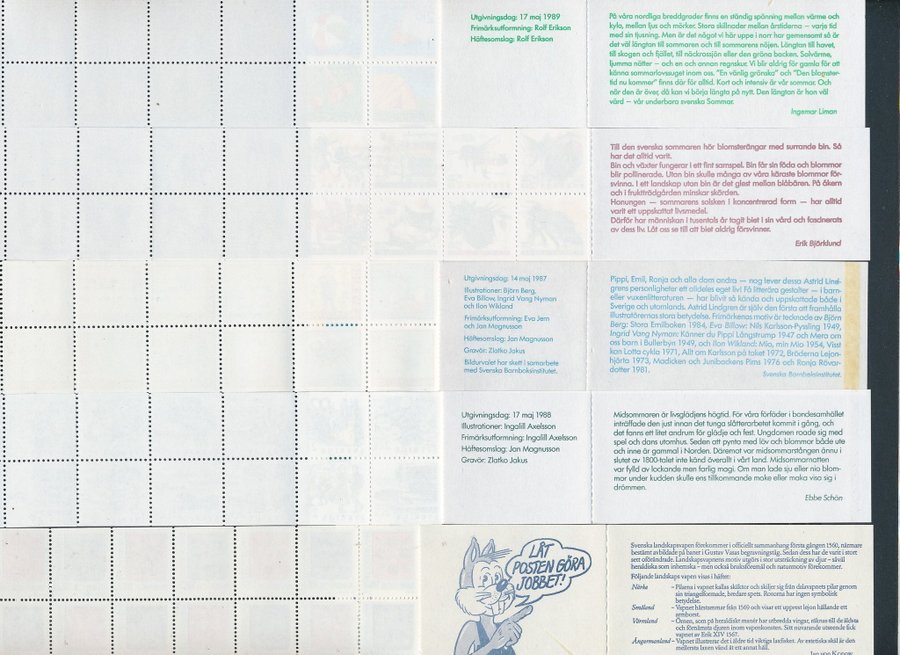 Utgivningsdag: 17 maj 1989
Frimärksutformning: Rolf Erikson
Häftesomslag: Rolf Erikson
På våra nordliga breddgrader finns en ständig spänning mellan värme och
kyla, mellan ljus och mörker. Stora skillnader mellan årstiderna — varje tid
med sin tjusning. Men är det något vi här uppe i norr har gemensamt så är
det väl längtan till sommaren och till sommarens nöjen. Längtan till havet,
till skogen och fjället, till näckrossjön eller den gröna backen. Solvärme,
ljumma nätter — och en och annan regnskur. Vi blir aldrig för gamla för att
känna sommarlovssuget inom oss. "En vänlig grönska" och "Den blomster-
tid nu kommer" finns där för alltid. Kort och intensiv är vår sommar. Och
när den är över, då kan vi börja längta på nytt. Den längtan är han väl
värd — vår underbara svenska Sommar.
Ingemar Liman
Till den svenska sommaren hör blomsterängar med surrande bin. Så
har det alltid varit.
Bin och växter fungerar i ett fint samspel. Bin får sin föda och blommor
blir pollinerade. Utan bin skulle många av våra käraste blommor för-
svinna. I ett landskap utan bin är det glest mellan blåbären. På åkern
och i fruktträdgården minskar skörden.
Honungen — sommarens solsken i koncentrerad form — har alltid
varit ett uppskattat livsmedel.
Därför har människan i tusentals år tagit biet i sin vård och fascinerats
av dess liv. Låt oss se till att biet aldrig försvinner.
Erik Björklund
Utgivningsdag: 14 maj 1987
Illustrationer: Björn Berg,
Eva Billow, Ingrid Vang Nyman
och Ilon Wikland
Frimärksutformning: Eva Jern
och Jan Magnusson
Häftesomslag: Jan Magnusson
Gravör: Zlatko Jakus
Bildurvalet har skett i samarbete
med Svenska Barnboksinstitutet.
Pippi, Emil, Ronja och alla dom andra — nog lever dessa Astrid Lind-
grens personligheter ett alldeles eget liv! Få litterära gestalter — i barn-
eller vuxenlitteraturen — har blivit så kända och uppskattade både i
Sverige och utomlands. Astrid Lindgren är själv den första att framhålla
illustratörernas stora betydelse. Frimärkenas motiv är tecknade av Björn
Berg: Stora Emilboken 1984, Eva Billow: Nils Karlsson-Pyssling 1949,
Ingrid Vang Nyman: Känner du Pippi Långstrump 1947 och Mera om
oss barn i Bullerbyn 1949, och Ilon Wikland: Mio, min Mio 1954, Visst
kan Lotta cykla 1971, Allt om Karlsson på taket 1972, Bröderna Lejon-
hjärta 1973, Madicken och Junibackens Pims 1976 och Ronja Rövar-
dotter 1981.
Svenska Barnboksinstitutet.
Utgivningsdag: 17 maj 1988
Illustrationer: Ingalill Axelsson
Frimärksutformning: Ingalill Axelsson
Häftesomslag: Jan Magnusson
Gravör: Zlatko Jakus
Midsommaren är livsglädjens högtid. För våra förfäder i bondesamhället
inträffade den just innan det tunga slåtterarbetet kommit i gång, och
det fanns ett litet andrum för glädje och fest. Ungdomen roade sig med
spel och dans utomhus. Seden att pynta med löv och blommor både ute
och inne är gammal i Norden. Däremot var midsommarstången ännu i
slutet av 1800-talet inte känd överallt i vårt land. Midsommarnatten
var fylld av lockande men farlig magi. Om man lade sju eller nio blom-
mor under kudden skulle ens tillkommande make eller maka visa sig i
drömmen.
Ebbe Schön
LÅT
POSTEN GÖRA
JOBBET!
Svenska landskapsvapen förekommer i officiellt sammanhang första gången 1560, närmare
bestämt avbildade på baner i Gustav Vasas begravningståg. Sedan dess har de varit i stort
sett oförändrade. Landskapsvapnens motiv utgörs i stor utsträckning av djur – såväl
heraldiska som inhemska – men också bruksföremål och naturmotiv förekommer.
Följande landskaps vapen visas i häftet:
Närke – Pilarna i vapnet kallas skäktor och skiljer sig från dalavapnets pilar genom
sin triangelformade, bredare spets. Rosorna har ingen symbolisk
betydelse.
Småland – Vapnet härstammar från 1569 och visar ett upprest lejon hållande ett
armborst.
Värmland – Örnen, som på heraldiskt manér har utbredda vingar, räknas till de äldsta
och förnämsta djuren inom vapenkonsten. Sitt nuvarande utseende fick
vapnet av Erik XIV 1567.
Ångermanland – Vapnet illustrerar det i äldre tid viktiga laxfisket. Av estetiska skäl är den
mellersta laxen vänd åt ett annat håll.